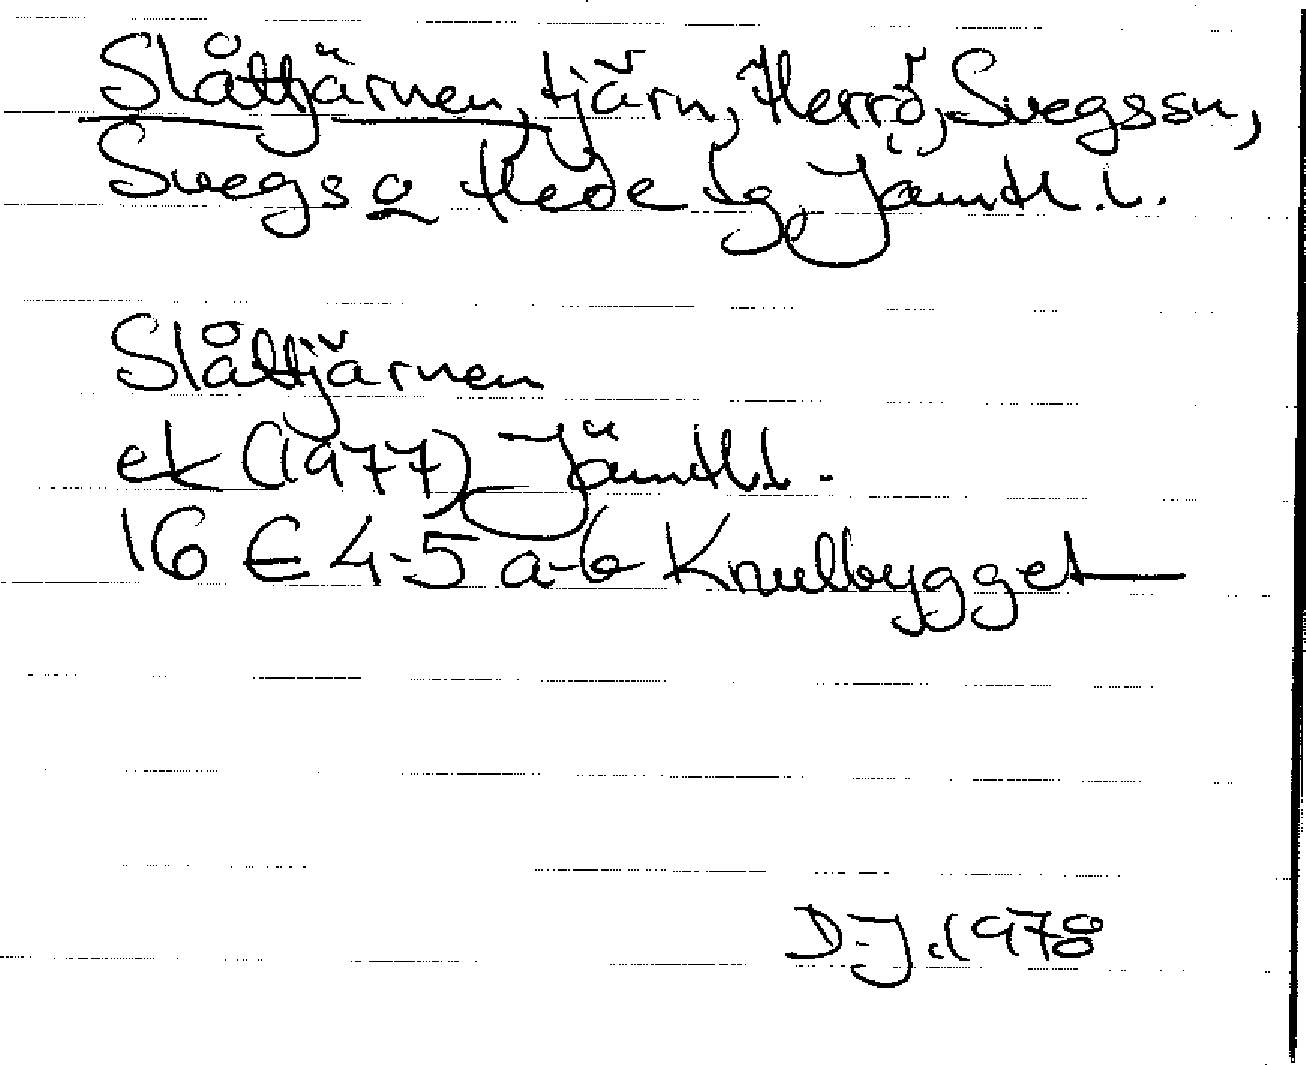 Slåttjärnen, tjärn, Herrö, Svegssn,
Svegs o Hede tg, Jämtl. l.
Slåttjärnen
ek (1977) Jämtl.l.
16 E 4-5 a-b Knulbygget
D-J. 1978